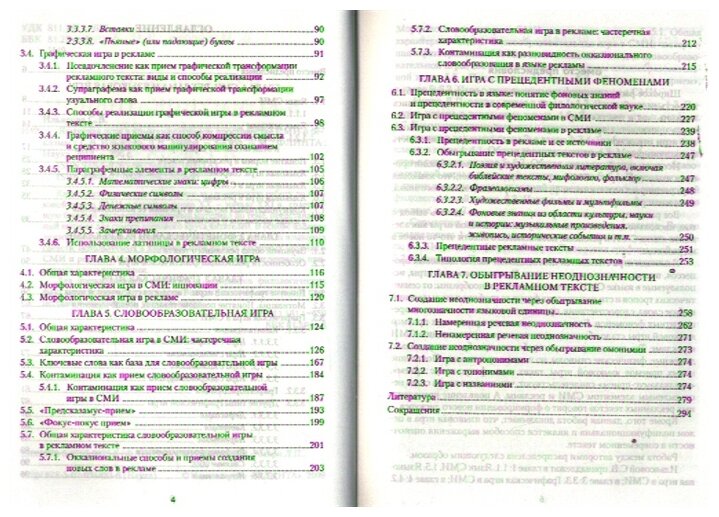 3.3.3.7. Вставки 90
2.3.3.8. «Пьяные» (или падающие) буквы 90
3.4. Графическая игра в рекламе 91
3.4.1. Псевдочленение как прием графической трансформации
рекламного текста: виды и способы реализации 92
3.4.2. Супраграфема как прием графической трансформации
узуального слова 97
3.4.3. Способы реализации графической игры в рекламном
тексте 98
3.4.4. Графические приемы как способ компрессии смысла
и средство языкового манипулирования сознанием
реципиента 102
3.4.5. Параграфемные элементы в рекламном тексте 105
3.4.5.1. Математические знаки: цифры 106
3.4.5.2. Физические символы 107
3.4.5.3. Денежные символы 107
3.4.5.4. Знаки препинания 108
3.4.5.5. Зачеркивания 109
3.4.6. Использование латиницы в рекламном тексте 110
ГЛАВА 4. МОРФОЛОГИЧЕСКАЯ ИГРА
4.1. Общая характеристика 116
4.2. Морфологическая игра в СМИ: инновации 115
4.3. Морфологическая игра в рекламе 120
ГЛАВА 5. СЛОВООБРАЗОВАТЕЛЬНАЯ ИГРА
5.1. Общая характеристика 124
5.2. Словообразовательная игра в СМИ: частеречная
характеристика 126
5.3. Ключевые слова как база для словообразовательной игры 167
5.4. Контаминация как прием словообразовательной игры 184
5.4.1. Контаминация как прием словообразовательной
игры в СМИ 187
5.5. «Предсказамус-прием» 193
5.6. «Фокус-покус прием» 199
5.7. Общая характеристика словообразовательной игры
в рекламном тексте 201
5.7.1. Окказиональные способы и приемы создания
новых слов в рекламе 203
4
5.7.2. Словообразовательная игра в рекламе: частеречная
характеристика 212
5.7.3. Контаминация как разновидность окказионального
словообразования в языке рекламы 215
ГЛАВА 6. ИГРА С ПРЕЦЕДЕНТНЫМИ ФЕНОМЕНАМИ
6.1. Прецедентность в языке: понятие фоновых знаний
и прецедентности в современной филологической науке 220
6.2. Игра с прецедентными феноменами в СМИ 227
6.3. Игра с прецедентными феноменами в рекламе 239
6.3.1. Прецедентность в рекламе и ее источники 238
6.3.2. Обыгрывание прецедентных текстов в рекламе 247
6.3.2.1. Поэзия и художественная литература, включая
библейские тексты, мифологию, фольклор 247
6.3.2.2. Фразеологизмы 248
6.3.2.3. Художественные фильмы и мультфильмы 249
6.3.2.4. Фоновые знания из области культуры, науки
и истории: музыкальные произведения,
живопись, исторические события и т.п. 250
6.3.3. Прецедентные рекламные тексты 251
6.3.4. Типология прецедентных рекламных текстов 253
ГЛАВА 7. ОБЫГРЫВАНИЕ НЕОДНОЗНАЧНОСТИ
В РЕКЛАМНОМ ТЕКСТЕ
7.1. Создание неоднозначности через обыгрывание
многозначности языковой единицы 258
7.1.1. Намеренная речевая неоднозначность 262
7.1.2. Ненамеренная речевая неоднозначность 271
7.2. Создание неоднозначности через обыгрывание омонимии 273
7.2.1. Игра с антропонимами 274
7.2.2. Игра с топонимами 274
7.2.3. Игра с названиями 274
Литература 279
Сокращения 294